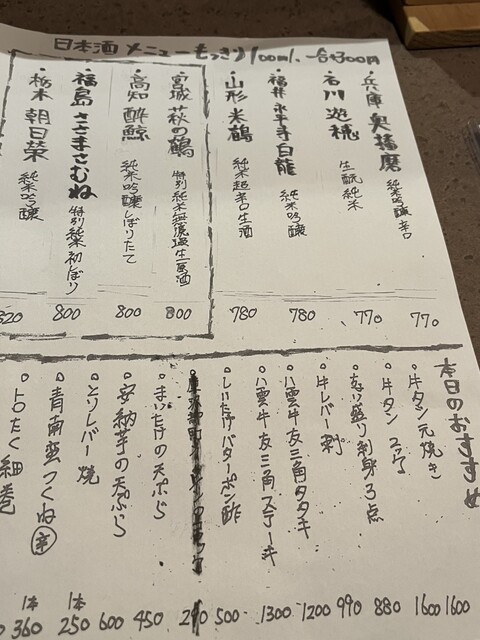 日本酒メニュー もっきり100ml
・兵庫 奥播磨 純米吟醸辛口 770
・石川 遊穂 生酛純米 770
・福井 永平寺白龍 純米吟醸 780
・山形 米鶴 純米超辛口生酒 780
・宮城 萩の鶴 特別純米無濾過生原酒 800
・高知 酔鯨 純米吟醸しぼりたて 800
・福島 ささまさむね 特別純米 初しぼり 800
・栃木 朝日栄 純米吟醸 820
本日のおすすめ
牛タン元焼き 1600
牛タン 1600
盛り刺身3点
牛レバー刺
八雲牛友三角タタキ
八雲牛友三角ステーキ
しいたけバターポン酢
まいたけの天ぷら
安納芋の天ぷら
とりレバー焼
青南蛮つくね 辛
トロたく細巻
880
990
1200
1300
500
290
450
600
1本 250
1本 360